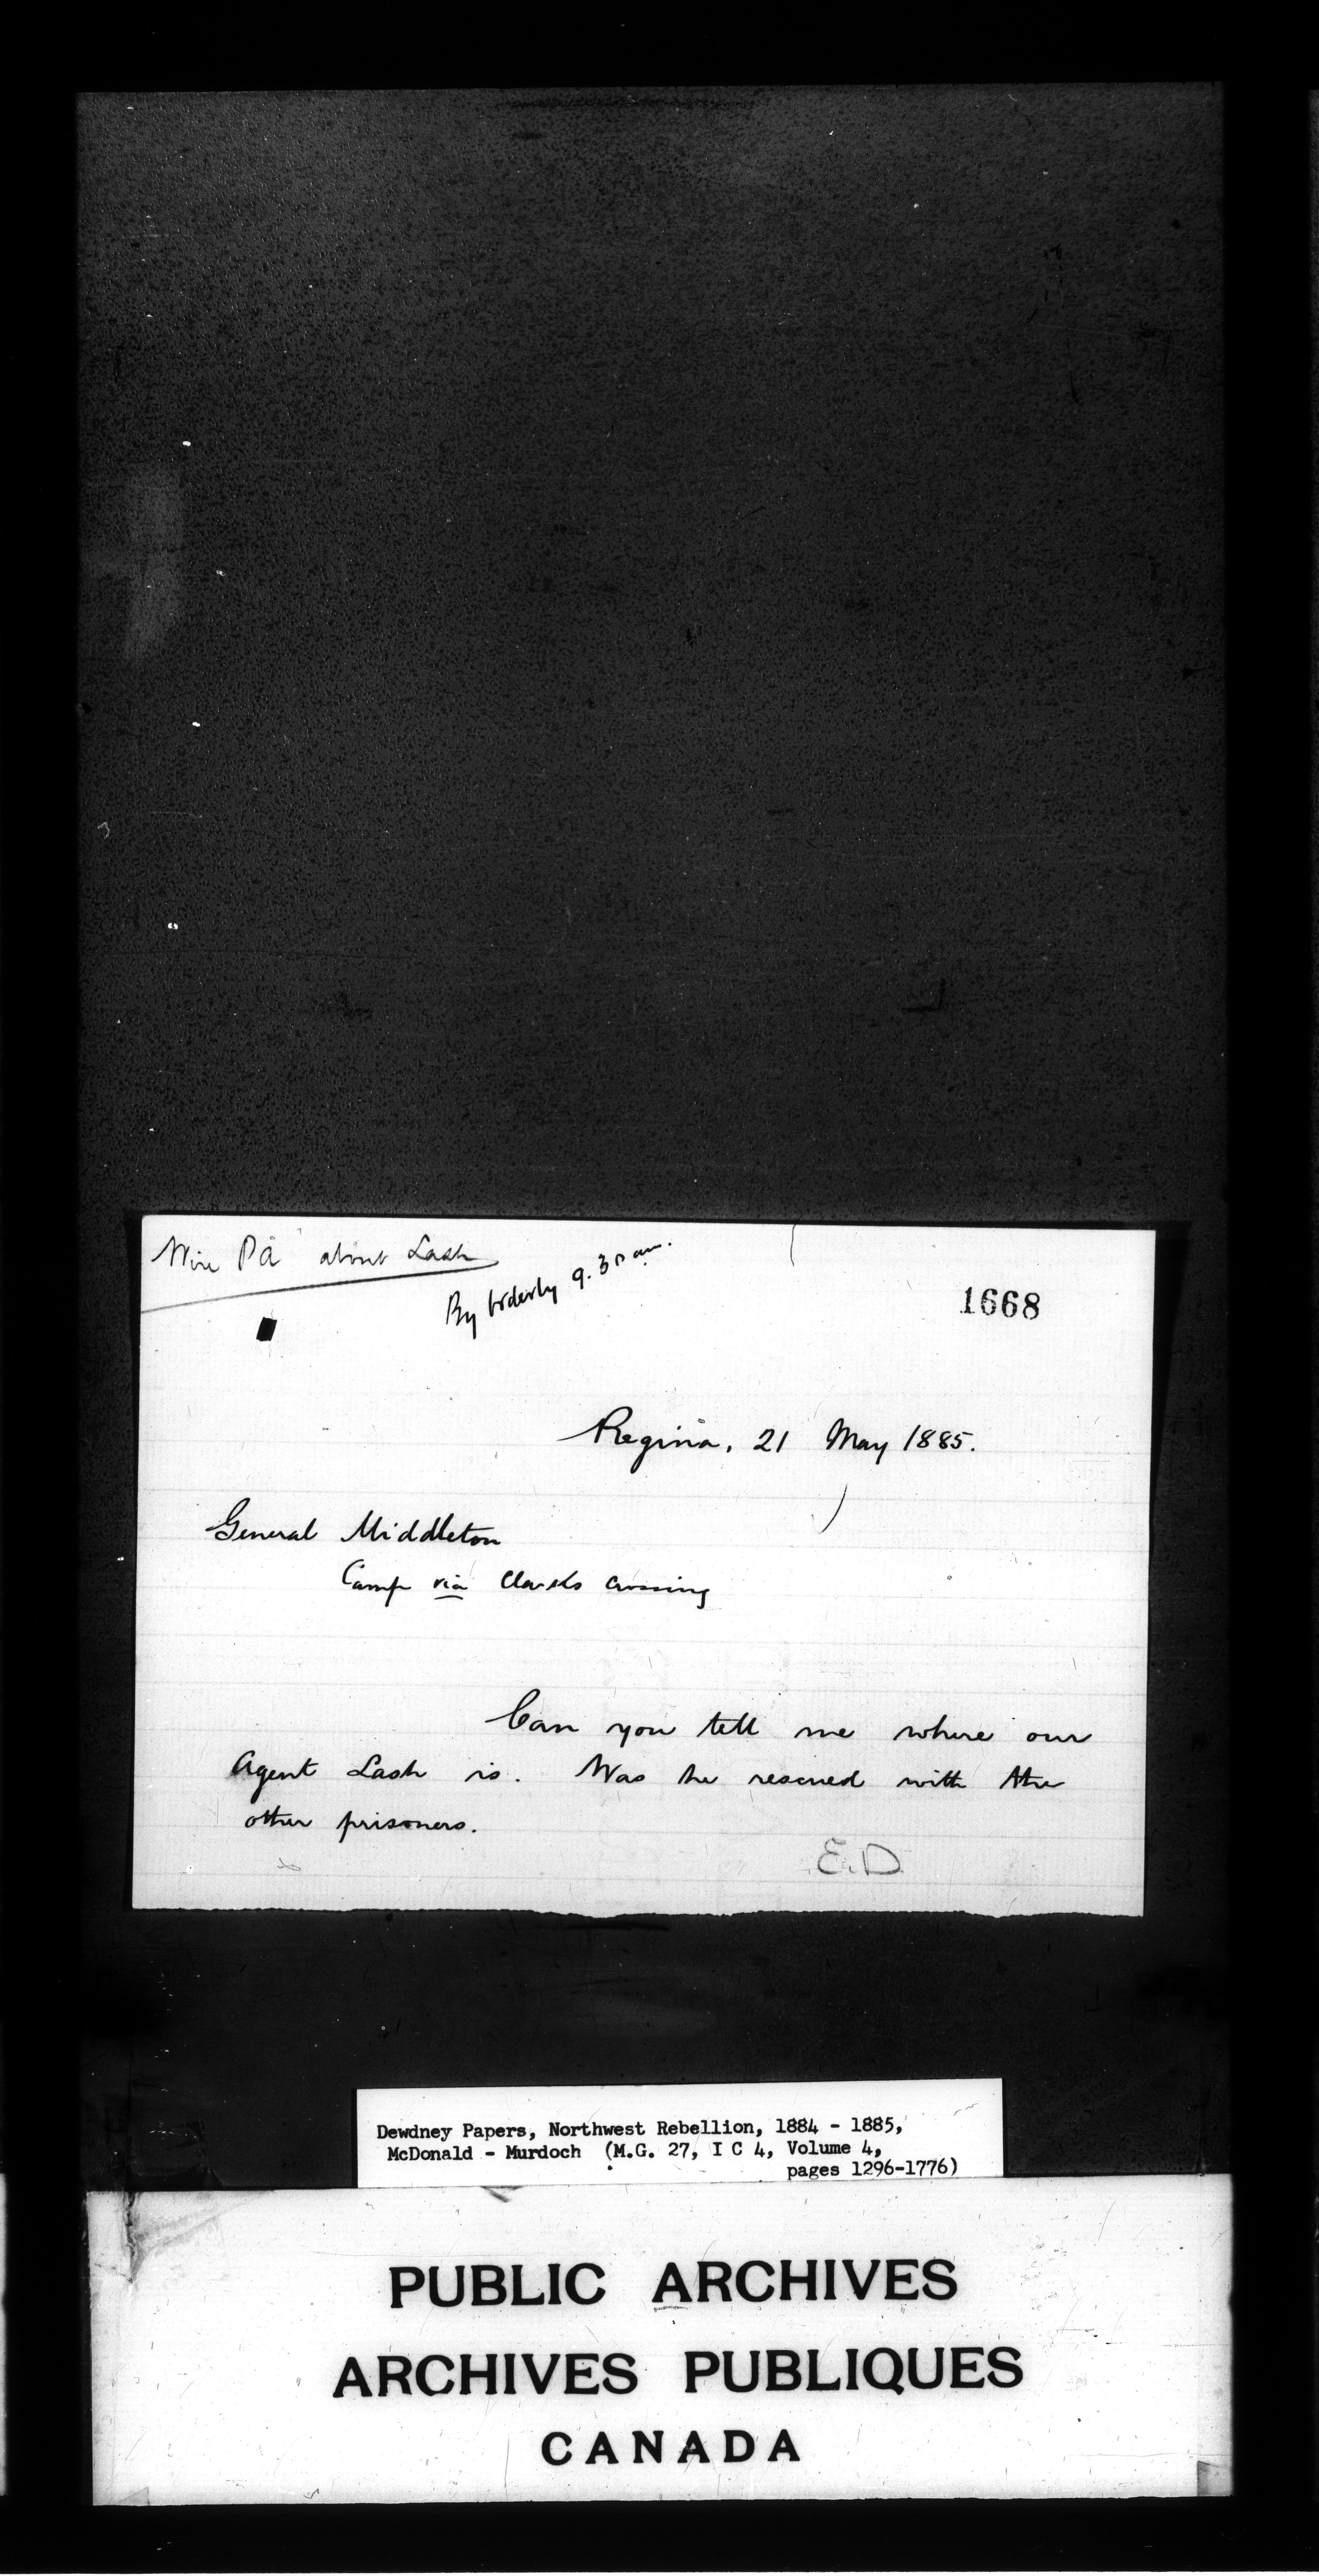 Wire PA about Lash
By orderly 9.30 am.
1668
Regina, 21 May 1885.
General Middleton
Camp via Clarks Crossing
Can you tell me where our
Agent Lash is. Was he rescued with the
other prisoners.
E.D
Dewdney Papers, Northwest Rebellion, 1884 - 1885,
McDonald - Murdoch (M.G. 27, I C 4, Volume 4,
pages 1296-1776)
PUBLIC ARCHIVES
ARCHIVES PUBLIQUES
CANADA